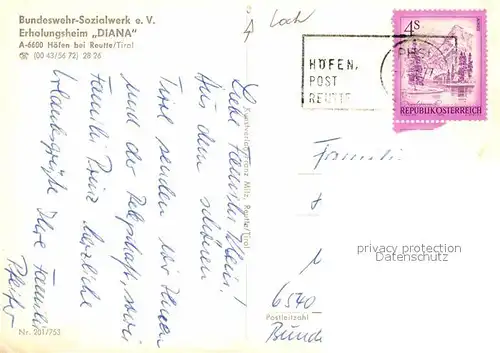 Bundeswehr-Sozialwerk e. V.
Erholungsheim „DIANA“
A-6600 Höfen bei Reutte/Tirol
☎ (00 43/56 72) 28 26
Loch
HÖFEN,
POST
REUTTE
4S
REPUBLIK ÖSTERREICH
Liebe Familie Klein!
Aus dem schönen
Tirol senden wir Ihnen
und der Belegschaft, sowie
Familie Prinz herzliche
Urlaubsgrüße Ihre Familie
Pfeifer
Kunstverlag Franz Milz, Reutte/Tirol
Nr. 201/753
Familie
privacy protection
Datenschutz
6540
Postleitzahl